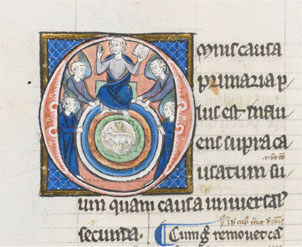 Omnis causa
primaria p
lus est influ
ens supra ca
usatum su
um quam causa universal
secunda. Cumg removet ca